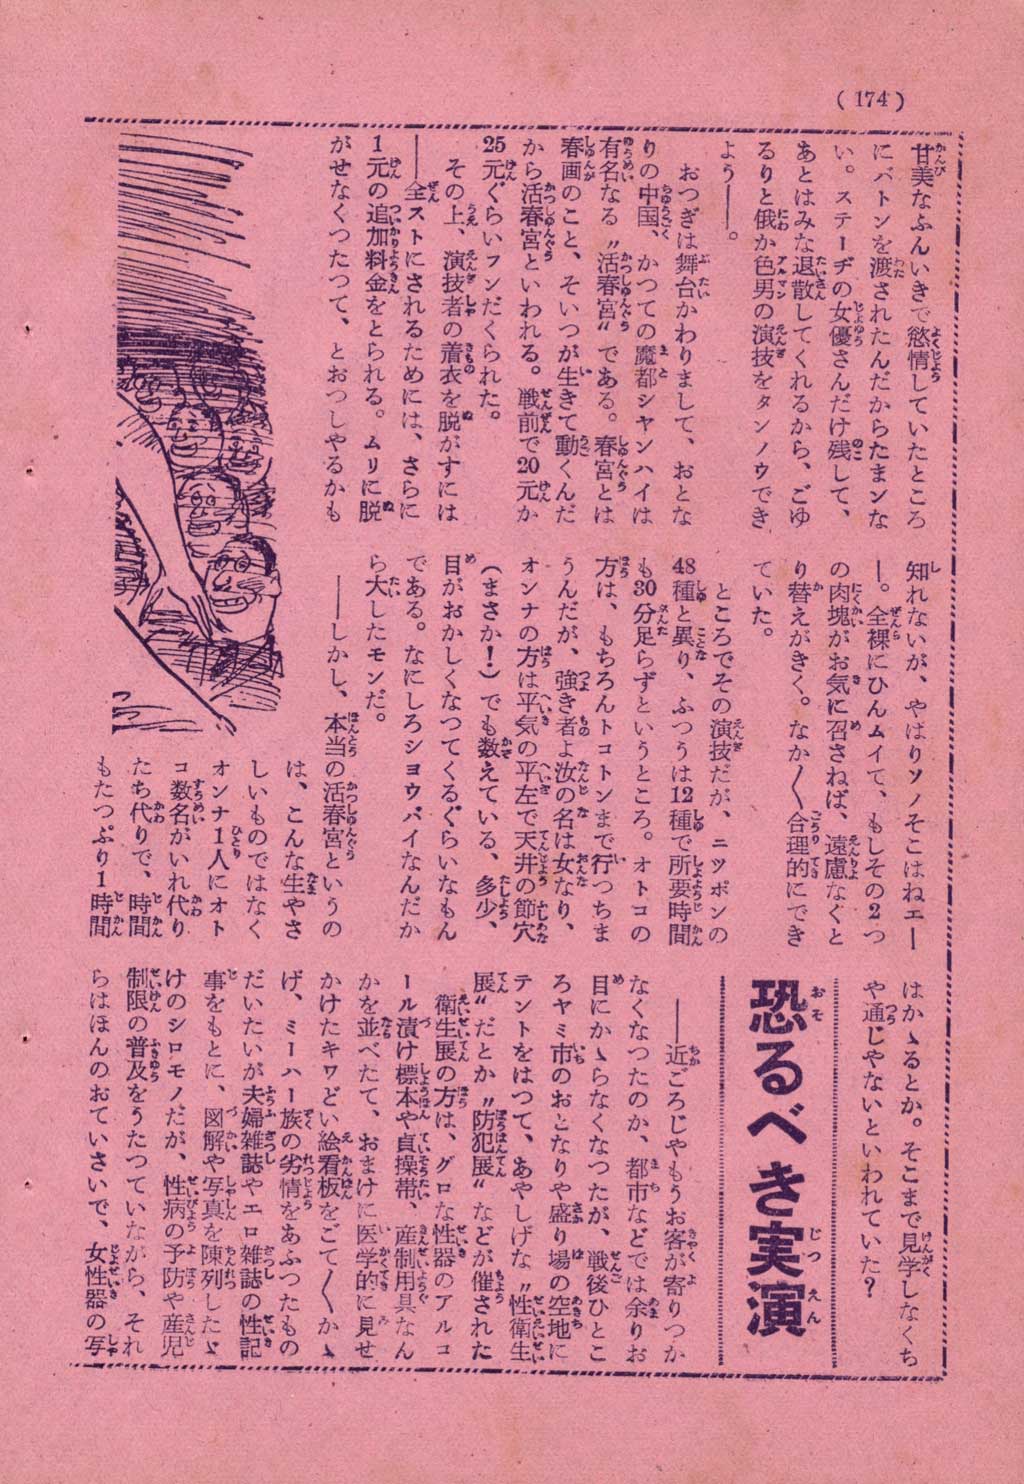 (174)
甘美なふんいきで慾情していたところ
にバトンを渡されたんだからたまンな
い。ステーヂの女優さんだけ残して、
あとはみな退散してくれるから、ごゆ
るりと俄か色男の演技をタンノウでき
よう――。
おつぎは舞台かわりまして、おとな
りの中国、かつての魔都シヤンハイは
有名なる〝活春宮〟である。春宮とは
春画のこと、そいつが生きて動くんだ
から活春宮といわれる。戦前で20元か
25元ぐらいフンだくられた。
その上、演技者の着衣を脱がすには
――全ストにされるためには、さらに
1元の追加料金をとられる。ムリに脱
がせなくつたつて、とおつしやるかも
知れないが、やはりソノそこはねエー
ー。全裸にひんムイて、もしその2つ
の肉塊がお気に召さねば、遠慮なくと
り替えがきく。なか〱合理的にでき
ていた。
ところでその演技だが、ニツポンの
48種と異り、ふつうは12種で所要時間
も30分足らずというところ。オトコの
方は、もちろんトコトンまで行つちま
うんだが、強き者よ汝の名は女なり、
オンナの方は平気の平左で天井の節穴
(まさか!)でも数えている、多少、
目がおかしくなつてくるぐらいなもん
である。なにしろシヨウバイなんだか
ら大したモンだ。
――しかし、本当の活春宮というの
は、こんな生やさ
しいものではなく
オンナ1人にオト
コ数名がいれ代り
たち代りで、時間
もたつぷり1時間
はかゝるとか。そこまで見学しなくち
や通じやないといわれていた?
恐るべき実演
――近ごろじやもうお客が寄りつか
なくなつたのか、都市などでは余りお
目にかゝらなくなつたが、戦後ひとこ
ろヤミ市のおとなりや盛り場の空地に
テントをはつて、あやしげな〝性衛生
展〟だとか〝防犯展〟などが催された
衛生展の方は、グロな性器のアルコ
ール漬け標本や貞操帯、産制用具なん
かを並べたて、おまけに医学的に見せ
かけたキワどい絵看板をごて〱かゝ
げ、ミーハー族の劣情をあふつたもの
だいたいが夫婦雑誌やエロ雑誌の性記
事をもとに、図解や写真を陳列したゞ
けのシロモノだが、性病の予防や産児
制限の普及をうたつていながら、それ
らはほんのおていさいで、女性器の写